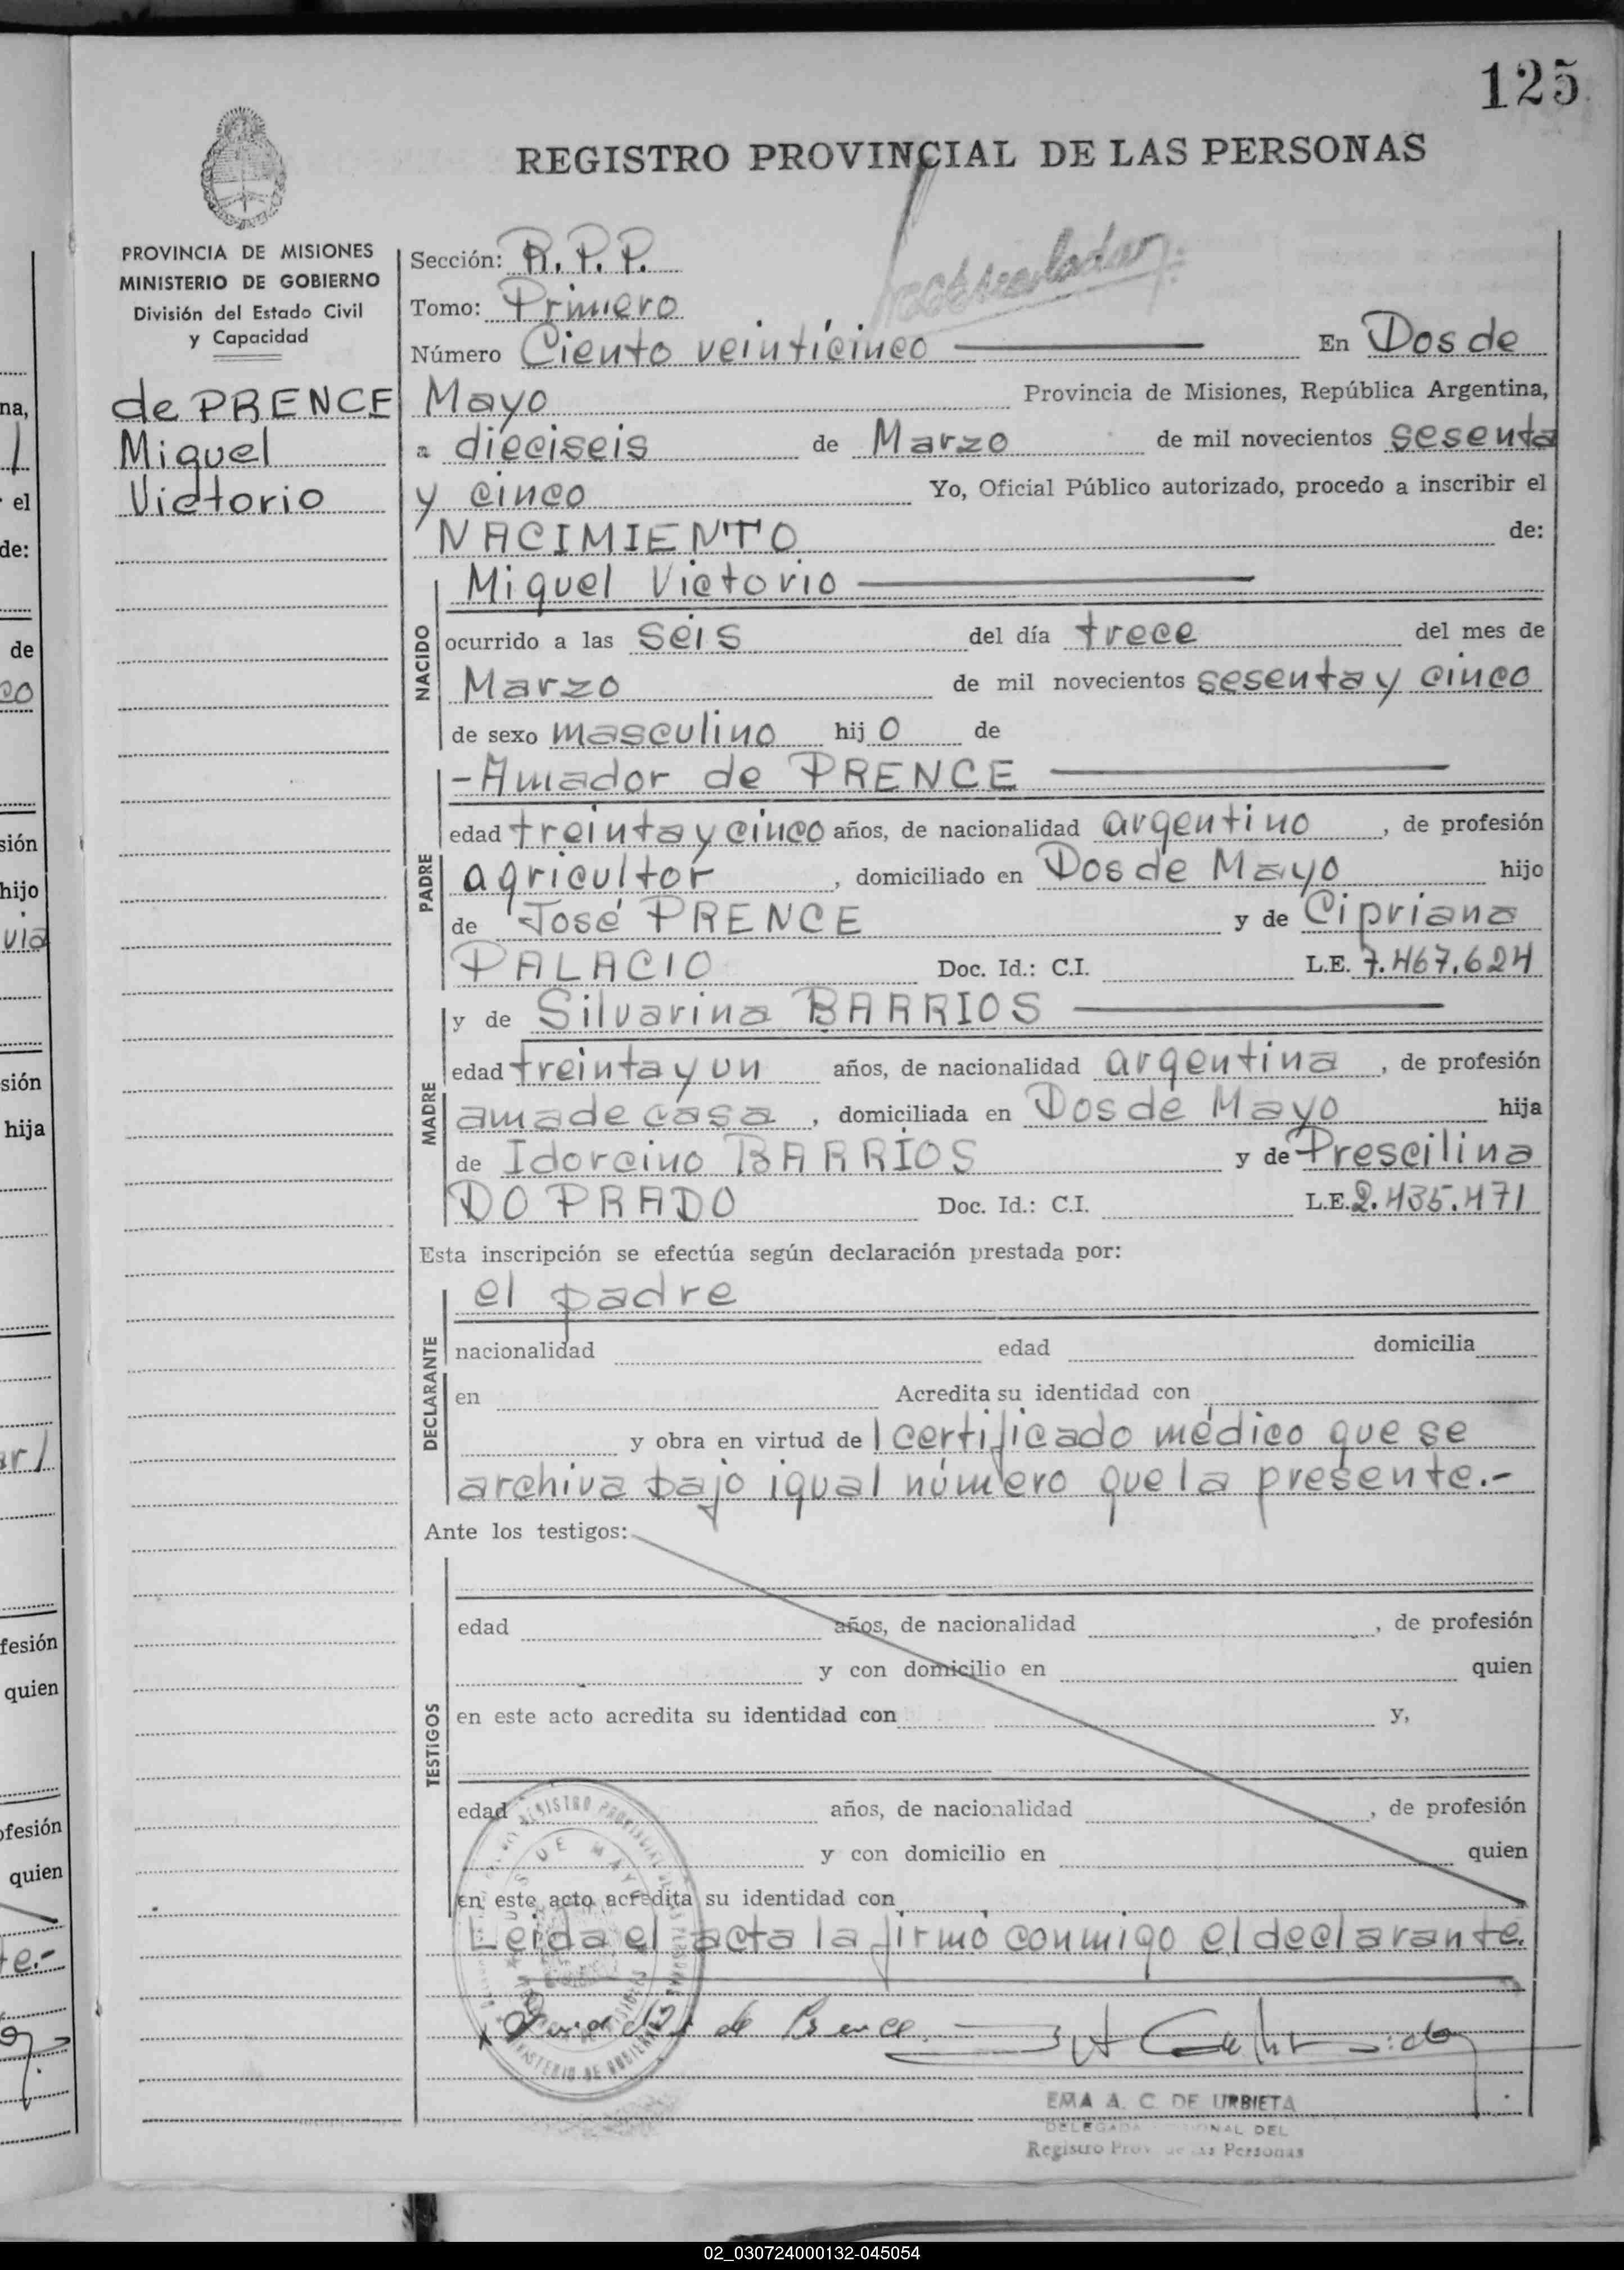 125
REGISTRO PROVINCIAL DE LAS PERSONAS
PROVINCIA DE MISIONES
MINISTERIO DE GOBIERNO
División del Estado Civil
y Capacidad
de PRENCE
Miguel
Victorio
Sección: R. P. P.
Tomo: Primero
Número Ciento veinticinco En Dos de
Mayo Provincia de Misiones, República Argentina,
a dieciseis de Marzo de mil novecientos sesenta
y cinco Yo, Oficial Público autorizado, procedo a inscribir el
NACIMIENTO de:
NACIDO
Miguel Victorio
ocurrido a las seis del día trece del mes de
Marzo de mil novecientos sesenta y cinco
de sexo masculino hij o de
PADRE
-Amador de PRENCE
edad treinta y cinco años, de nacionalidad argentino, de profesión
agricultor, domiciliado en Dos de Mayo hijo
de José PRENCE y de Cipriana
PALACIO Doc. Id.: C.I. L.E. 7.467.624
MADRE
y de Silvarina BARRIOS
edad treinta y un años, de nacionalidad argentina, de profesión
ama de casa, domiciliada en Dos de Mayo hija
de Idorcino BARRIOS y de Prescilina
DO PRADO Doc. Id.: C.I. L.E. 2.435.471
Esta inscripción se efectúa según declaración prestada por:
DECLARANTE
el padre
nacionalidad edad domicilia
en Acredita su identidad con
y obra en virtud de l certificado médico que se
archiva bajo igual número que la presente.-
Ante los testigos:
TESTIGOS
edad años, de nacionalidad , de profesión
y con domicilio en quien
en este acto acredita su identidad con y,
edad años, de nacionalidad , de profesión
y con domicilio en quien
en este acto acredita su identidad con
Leida el acta la firmó conmigo el declarante.
de Prence
EMA A. C. DE URBIETA
DELEGADA DEL
Registro Prov de las Personas
02_030724000132-045054